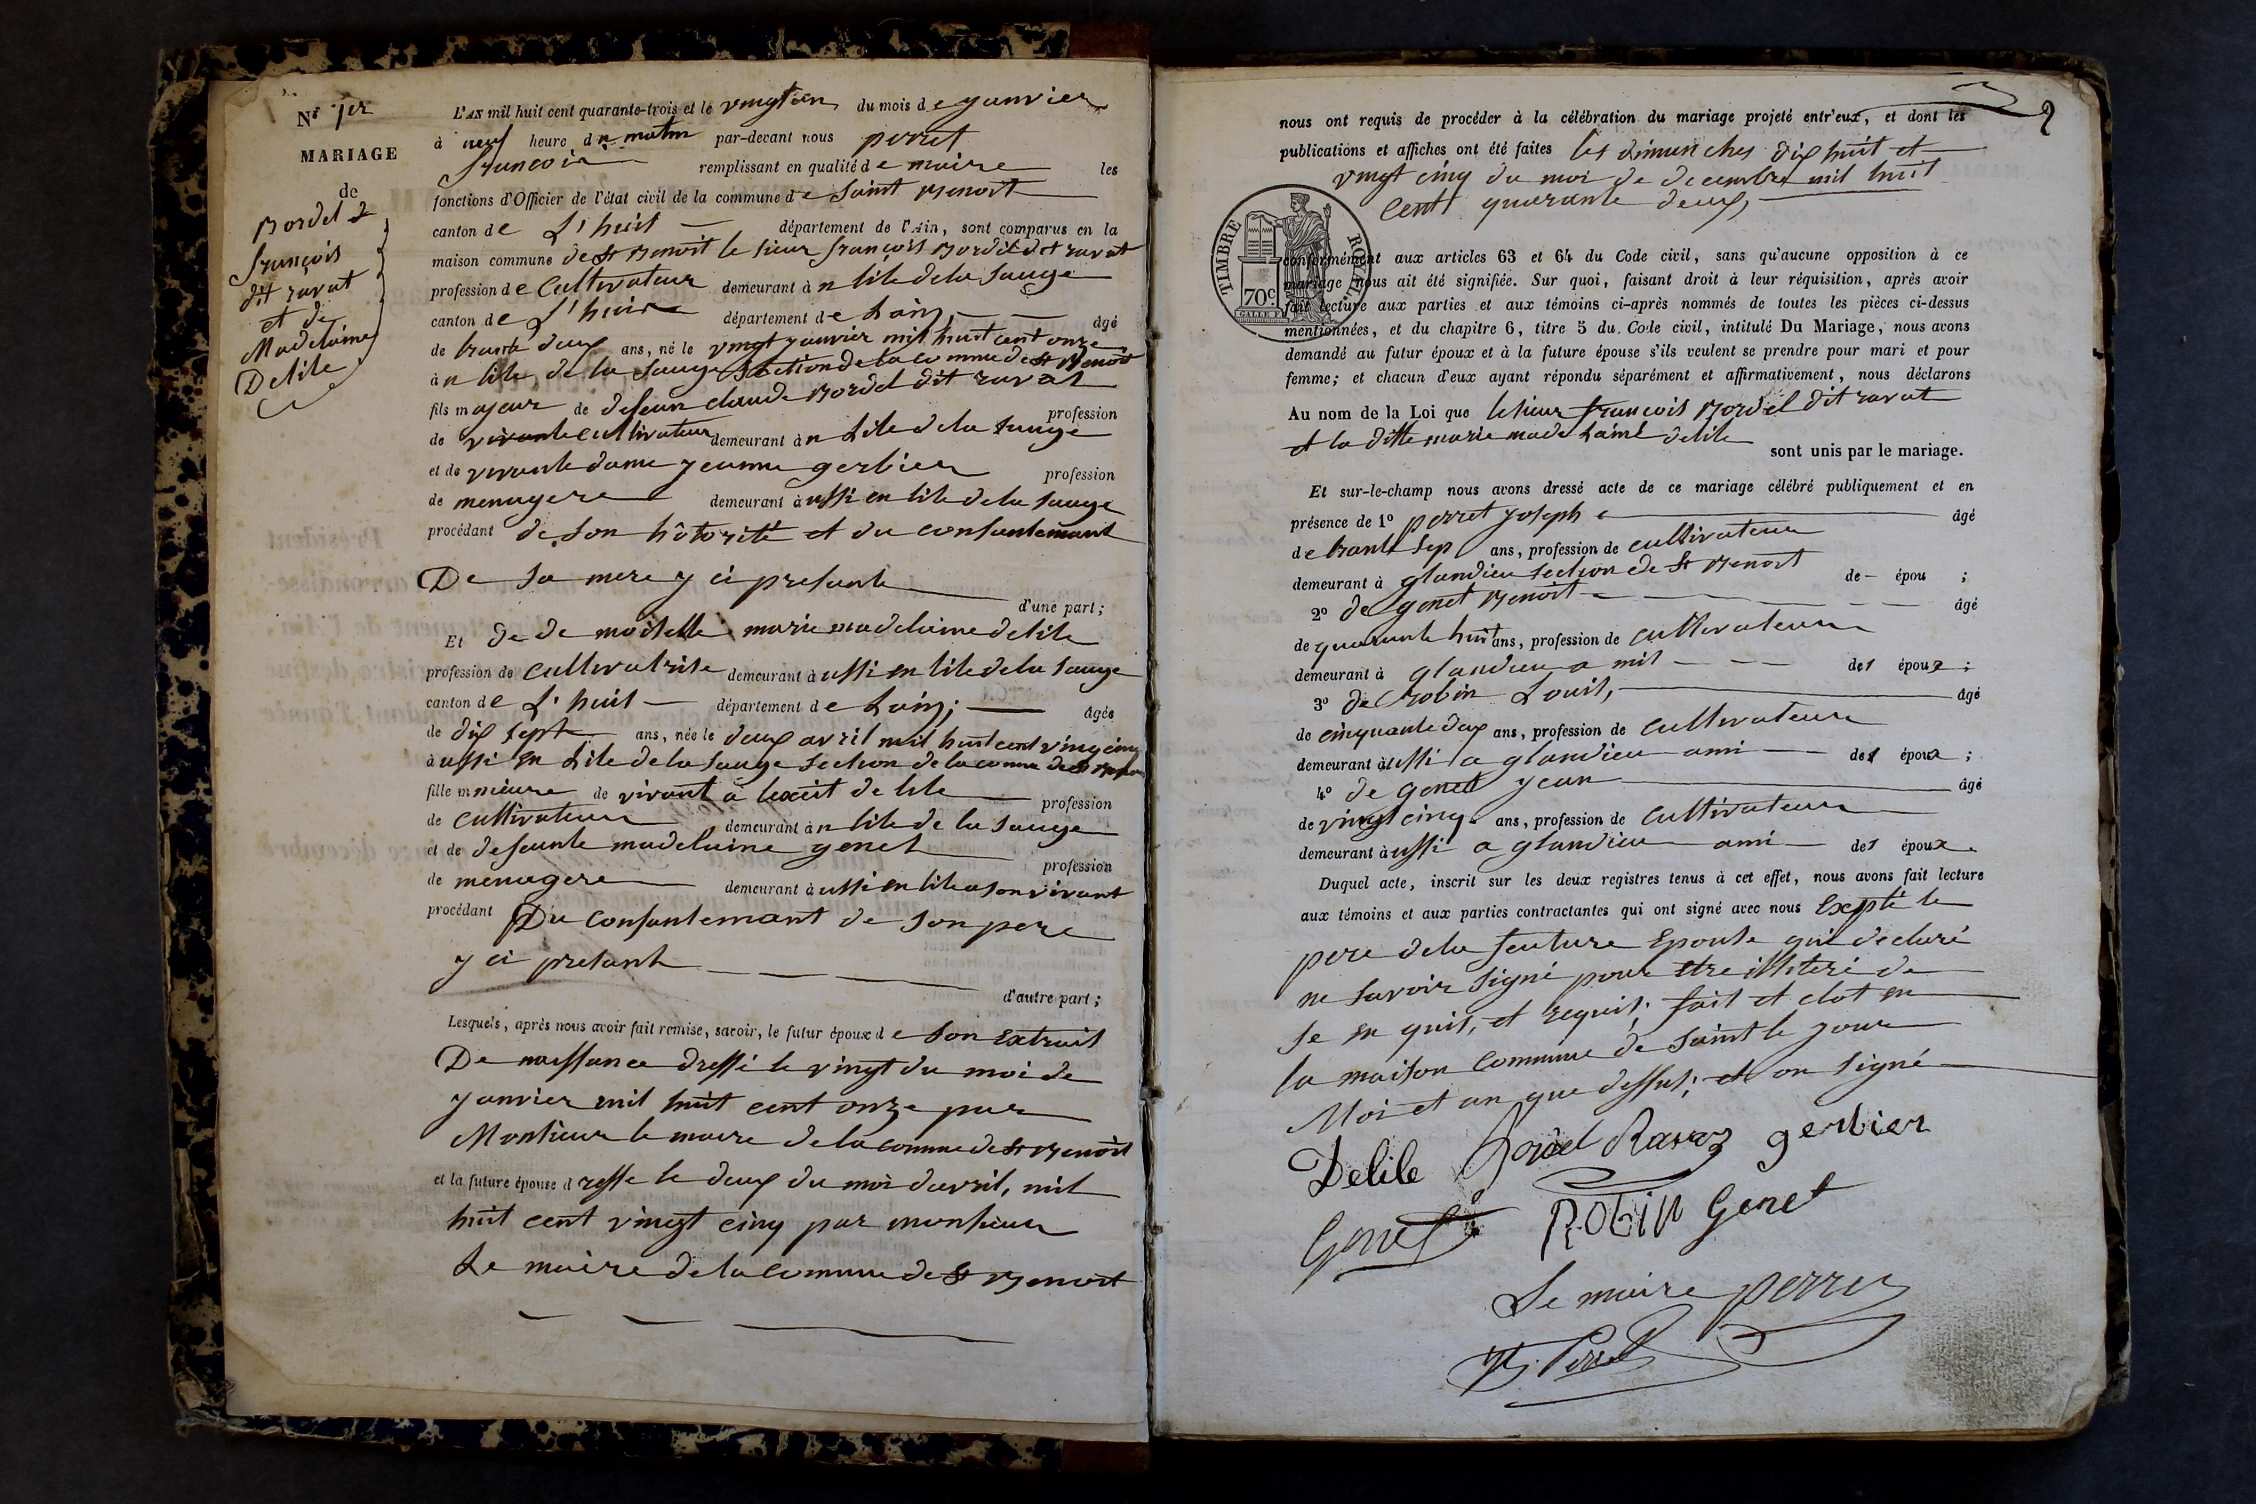 N° 1er
MARIAGE
de
Bordel
François
dit ravat
et de
Madelaine
Delile
L'AN mil huit cent quarante-trois et le vingt un du mois de yanvier
à neuf heure du matin par-devant nous perret
francois remplissant en qualité de maire les
fonctions d'Officier de l'état civil de la commune de Saint Benoit
canton de L'huit département de l'Ain, sont comparus en la
maison commune de St Benoit le sieur françois Bordel dit ravat
profession de Cultivateur demeurant à n lile de la Sauge
canton de L'huis département de Lain, âgé
de trante deux ans, né le vingt yanvier mil huit cent onze
à n lile de la Sauge Section de la commune de St Benoit
fils majeur de defeun claude Bordel dit ravat profession
de vivante cultivateur demeurant à n Lile de la Sauge
et de vivante dame yeanne gerbier profession
de menagere demeurant à ussi en lile de la Sauge
procédant de son hôtorité et du consantemant
De sa mere y ci presante
d'une part;
Et de de moiselle marie madelaine delile
profession de cultivatrise demeurant à ussi en lile de la Sauge
canton de L'huit département de Lain; âgée
de dix sept ans, née le deux avril mil huit cent vingt cinq
à ussi en Lile de la Sauge Section de la comune de St Benoit
fille mineure de vivant delile profession
de cultivateur demeurant à n lile de la Sauge
et de defeunte madelaine genet profession
de menagere demeurant à ussi en lile a son vivant
procédant Du consantemant de son pere
y ci presant
d'autre part;
Lesquels, après nous avoir fait remise, savoir, le futur époux de son extrait
De naissance dressé le vingt du moi de
yanvier mil huit cent onze par
Monsieur le maire de la commune de St Benoit
et la future épouse dresse le deux du moi davril, mil
huit cent vingt cinq par monsieur
Le maire de la commune de St Benoit
2
nous ont requis de procéder à la célébration du mariage projeté entr'eux, et dont les
publications et affiches ont été faites les dimanches dix huit et
vingt cinq du moi de decembre mil huit
cent quarante deux,
TIMBRE ROYAL.
70c.
conformément aux articles 63 et 64 du Code civil, sans qu'aucune opposition à ce
mariage nous ait été signifiée. Sur quoi, faisant droit à leur réquisition, après avoir
fait lecture aux parties et aux témoins ci-après nommés de toutes les pièces ci-dessus
mentionnées, et du chapitre 6, titre 5 du Code civil, intitulé Du Mariage, nous avons
demandé au futur époux et à la future épouse s'ils veulent se prendre pour mari et pour
femme; et chacun d'eux ayant répondu séparément et affirmativement, nous déclarons
Au nom de la Loi que le sieur francois Bordel dit ravat
et la ditte marie madelainé delile
sont unis par le mariage.
Et sur-le-champ nous avons dressé acte de ce mariage célébré publiquement et en
présence de 1° perret yoseph âgé
de trante sep ans, profession de cultivateur
demeurant à glandieu section de St Benoit de épou ;
2° de genet Benoit âgé
de quarante huit ans, profession de cultivateur
demeurant à glandieu a mis des époux ;
3° de Robin Louis, âgé
de cinquante deux ans, profession de cultivateur
demeurant à ussi a glandieu ami des époux ;
4° de genet yean âgé
de vingt cinq ans, profession de cultivateur
demeurant à ussi a glandieu ami des époux.
Duquel acte, inscrit sur les deux registres tenus à cet effet, nous avons fait lecture
aux témoins et aux parties contractantes qui ont signé avec nous Exepté le
pere de la feuture Epouse qui declaré
ne savoir signé pour etre illiteré de
se en quit, et requit; fait et clot en
la maison commune de saint le jour
Moi et an que dessus; et on signé
Delile Bordel Ravaz gerbier
Genet ROBIN Genet
Le maire perret
Perret